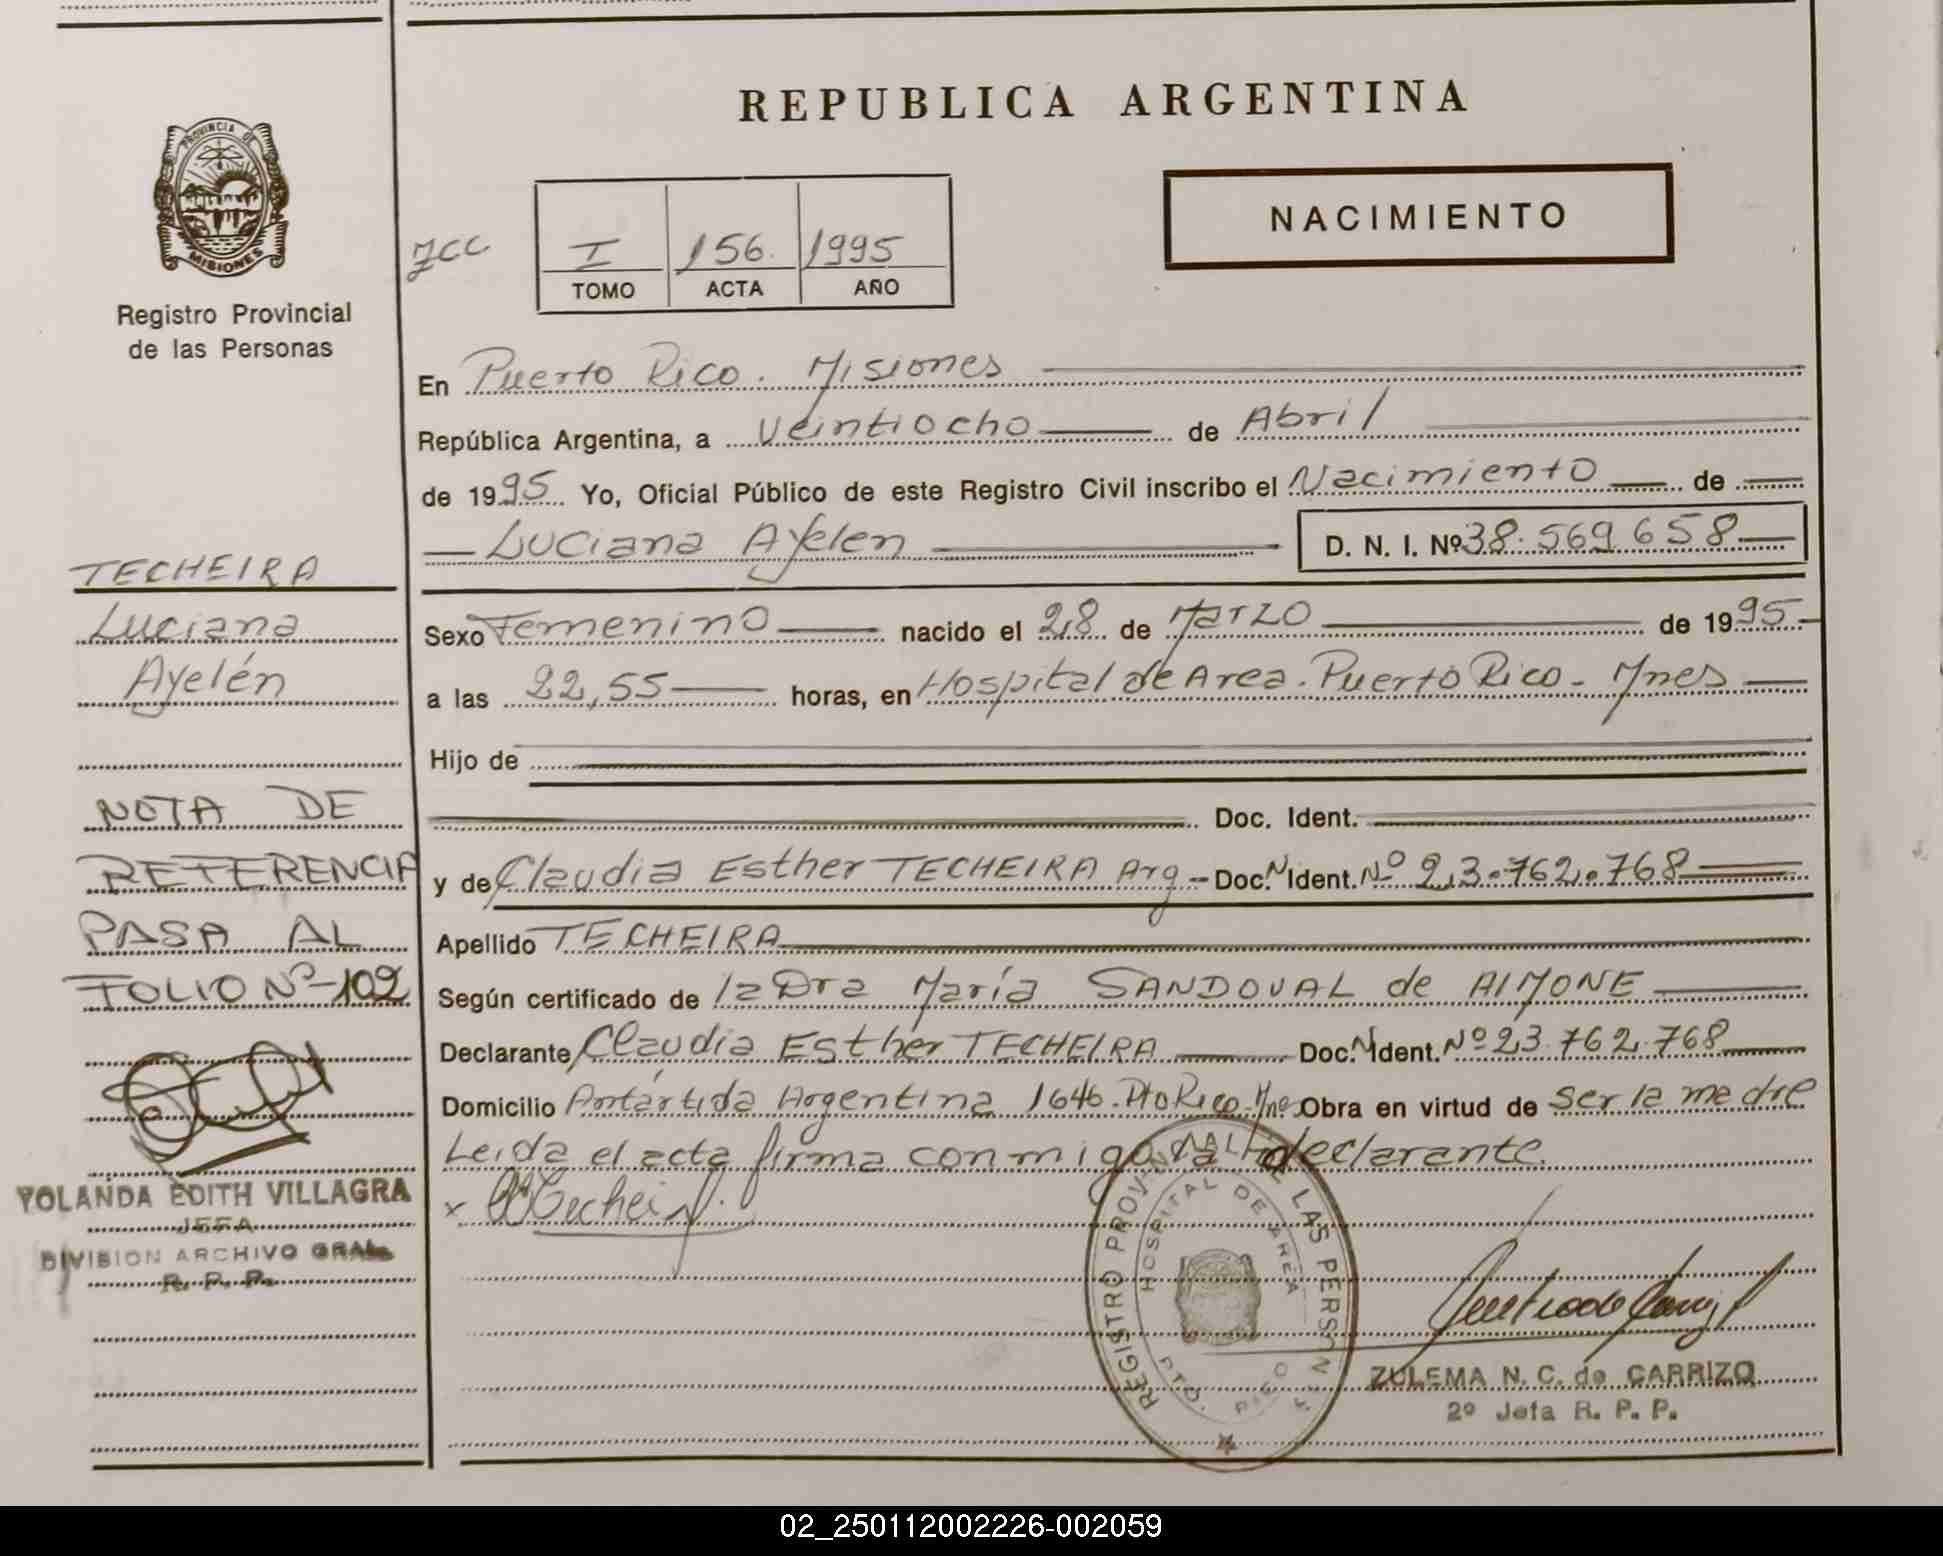 REPUBLICA ARGENTINA
PROVINCIA DE
MISIONES
Registro Provincial
de las Personas
NACIMIENTO
I 156. 1995
TOMO ACTA AÑO
En Puerto Rico. Misiones
República Argentina, a Veintiocho de Abril
de 1995 Yo, Oficial Público de este Registro Civil inscribo el Nacimiento de
Luciana Ayelen D. N. I. Nº 38.569.658
Sexo Femenino nacido el 28 de Marzo de 1995
a las 22,55 horas, en Hospital de Area. Puerto Rico - Mnes
Hijo de
Doc. Ident.
y de Claudia Esther TECHEIRA Arg - Doc. N Ident. Nº 23.762.768
Apellido TECHEIRA
Según certificado de la Dra María SANDOVAL de AIMONE
Declarante Claudia Esther TECHEIRA Doc. N Ident. Nº 23.762.768
Domicilio Antártida Argentina 1646. Pto Rico. Mnes Obra en virtud de ser la madre
Leida el acta firma conmigo la declarante.
x
TECHEIRA
Luciana
Ayelén
NOTA DE
REFERENCIA
PASA AL
FOLIO Nº 102
YOLANDA EDITH VILLAGRA
JEFA
DIVISION ARCHIVO GRAL.
R. P. P.
REGISTRO PROVINCIAL DE LAS PERSONAS
HOSPITAL DE AREA
PTO. RICO
ZULEMA N. C. de CARRIZO
2º Jefa R. P. P.
02_250112002226-002059